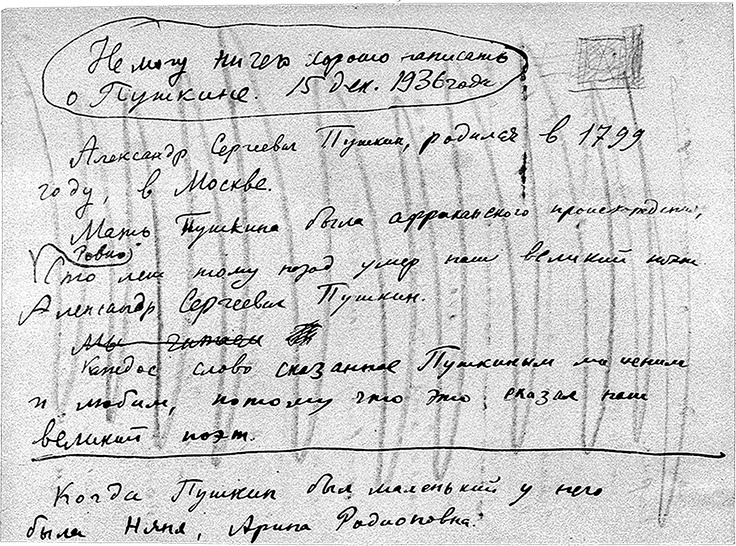 Не могу ничего хорошо написать
о Пушкине. 15 дек. 1936 года
Александр Сергеевич Пушкин, родился в 1799
году, в Москве.
Мать Пушкина была африканского происхождения,
Ровно
Сто лет тому назад умер наш великий поэт
Александр Сергеевич Пушкин.
Мы читаем
Каждое слово сказанное Пушкиным мы ценим
и любим, потому что это сказал наш
великий поэт.
Когда Пушкин был маленький у него
была Няня, Арина Родионовна.